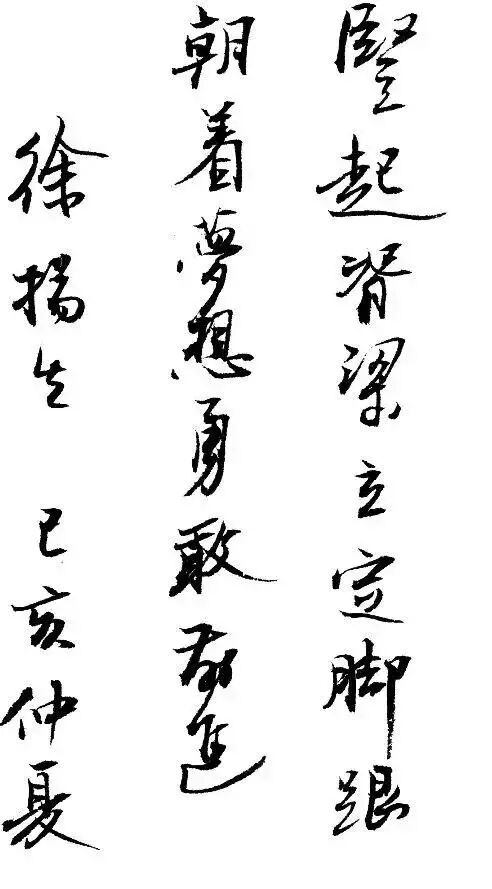 竪起脊梁立定脚跟
朝着夢想勇敢前進
徐揚生 己亥仲夏